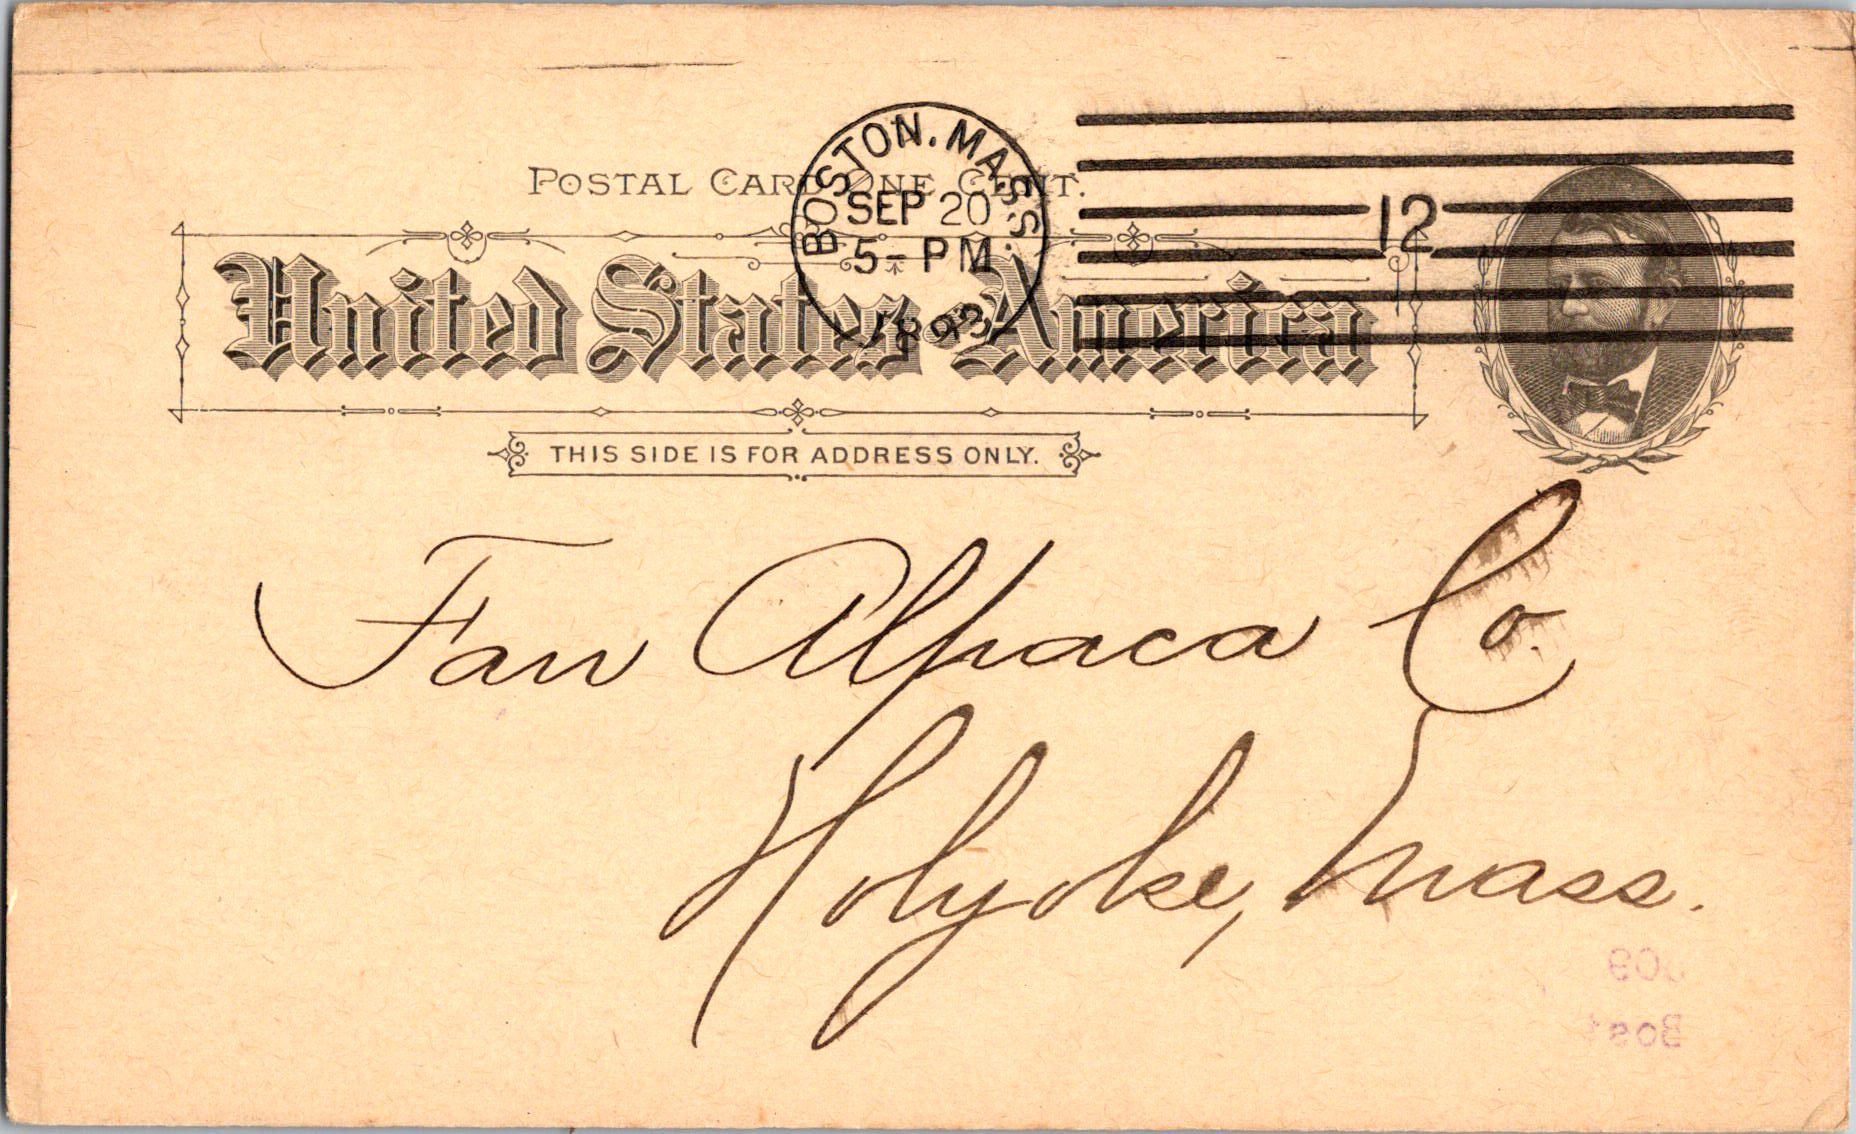 POSTAL CARD ONE CENT.
BOSTON, MASS.
SEP 20
5- PM
1893
12
United States of America
THIS SIDE IS FOR ADDRESS ONLY.
Farr Alpaca Co.
Holyoke, Mass.